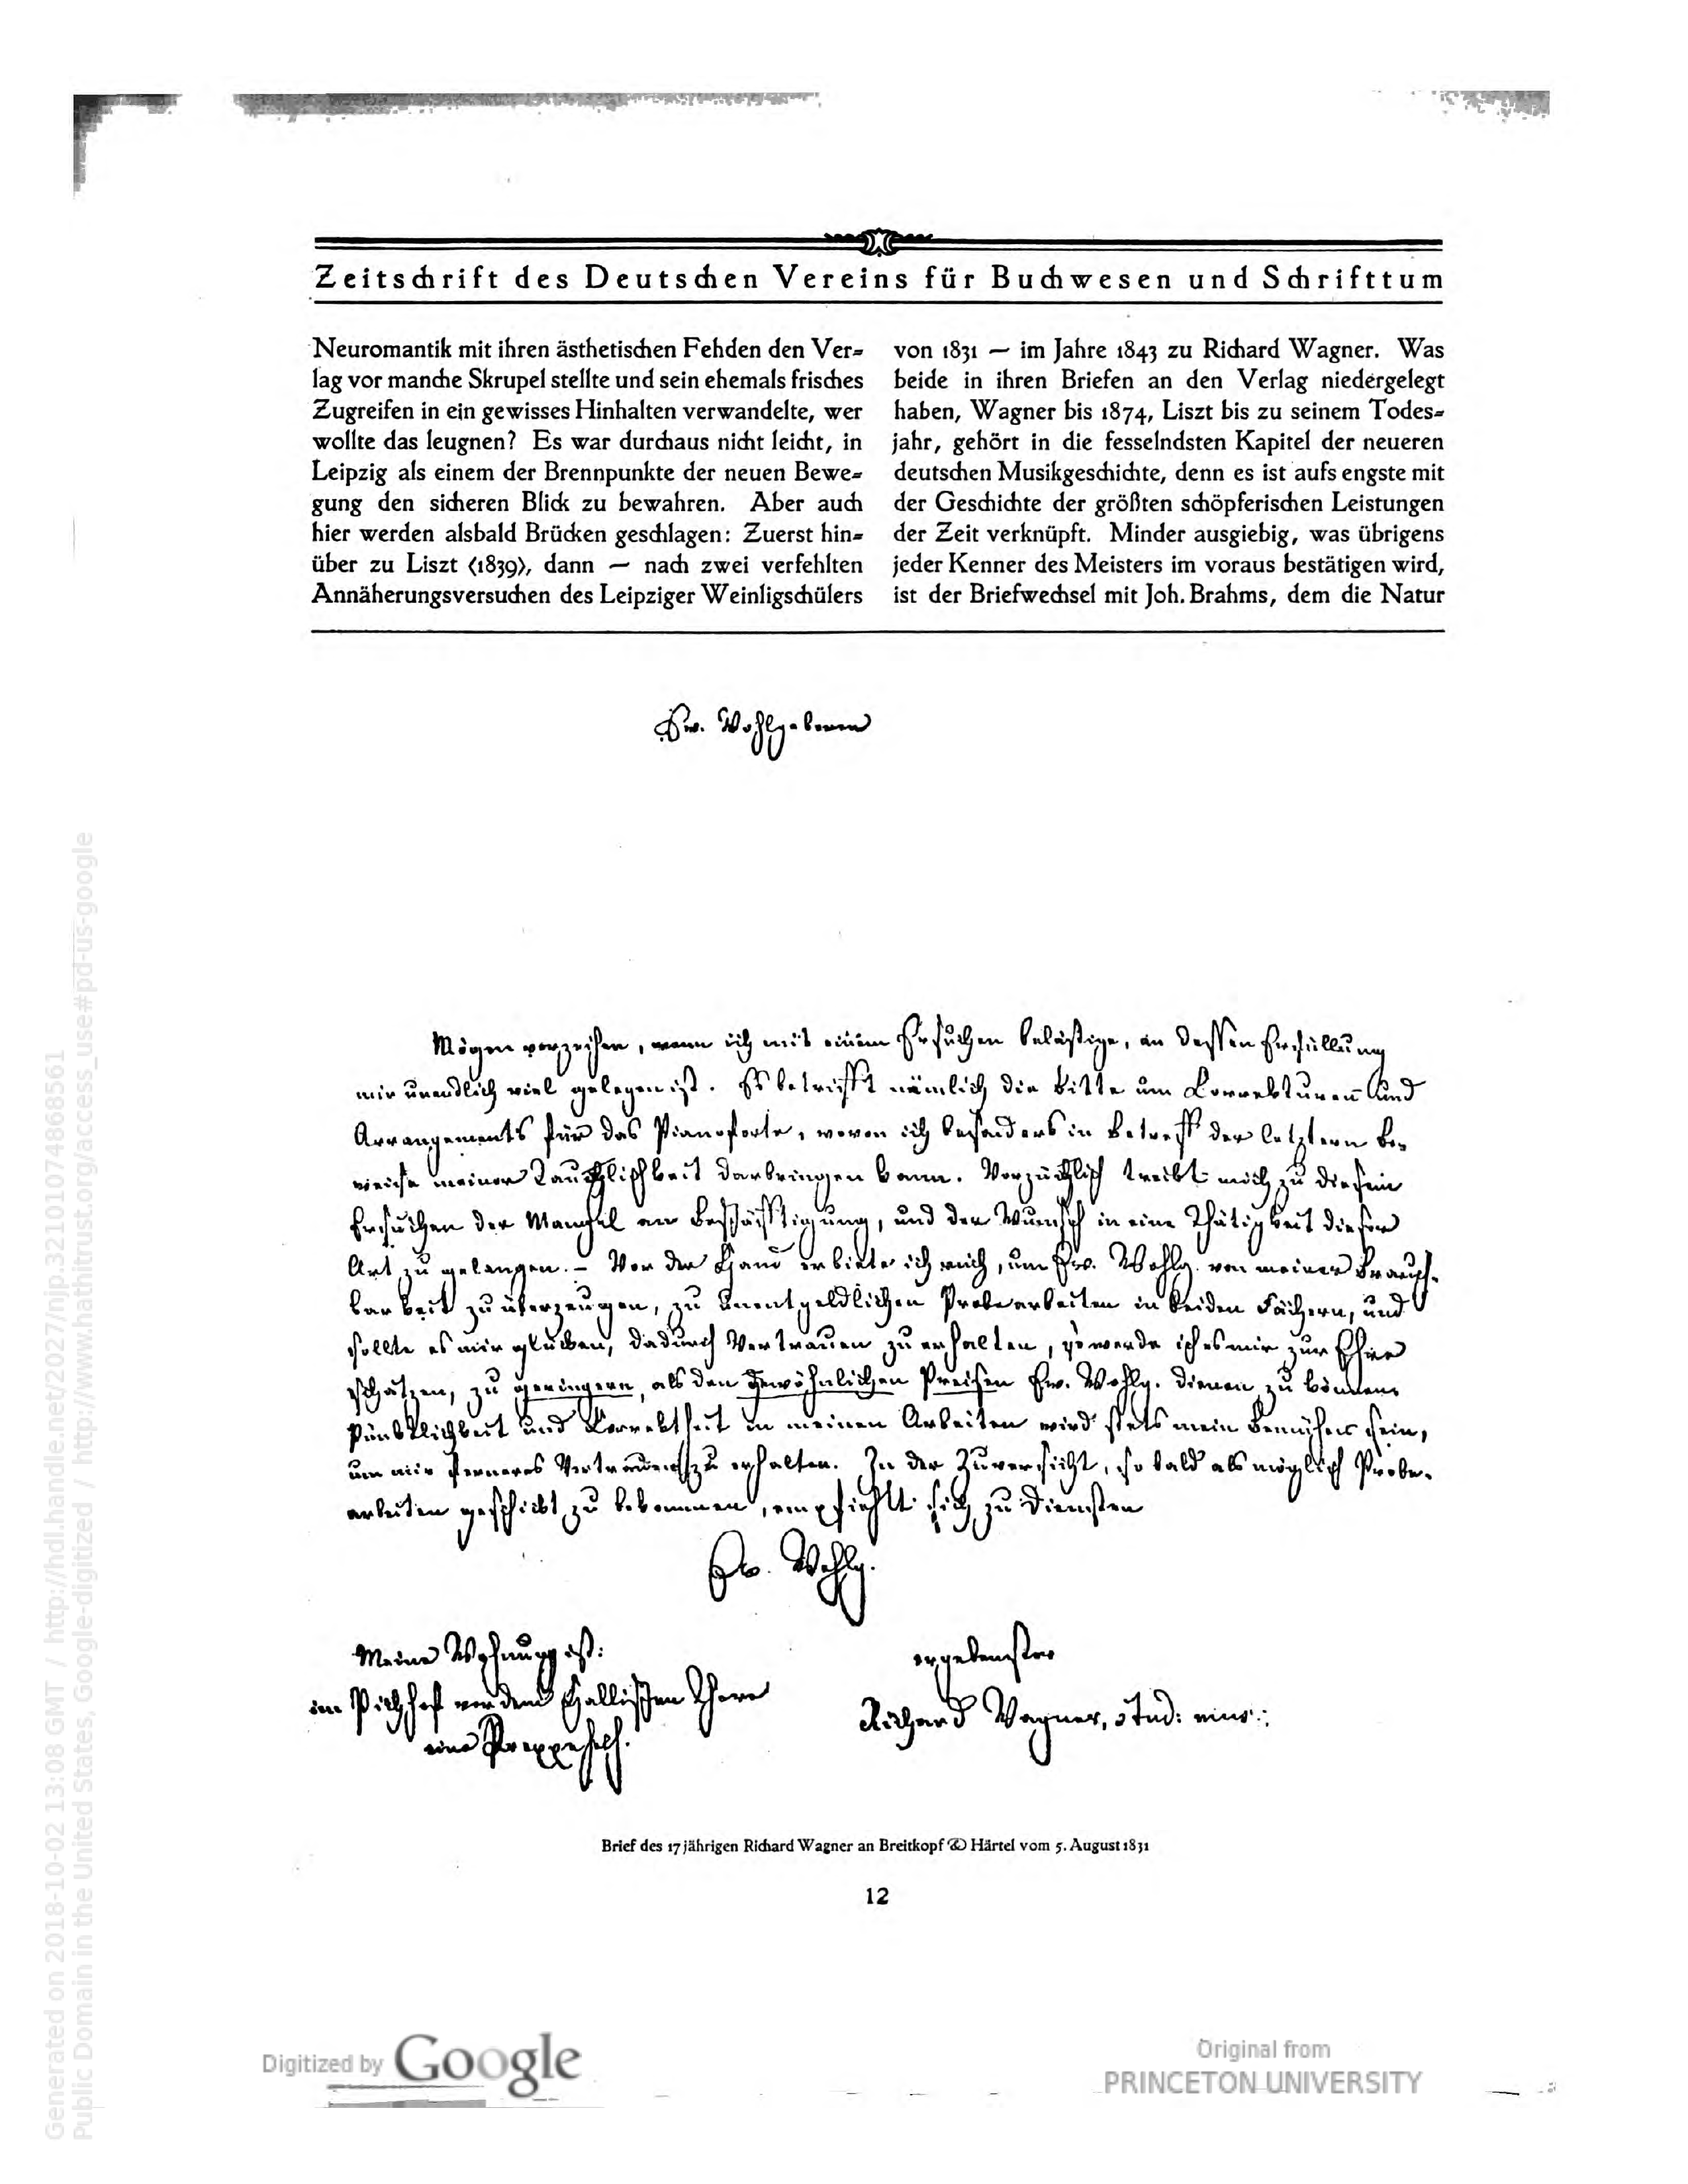 Zeitschrift des Deutschen Vereins für Buchwesen und Schrifttum
Neuromantik mit ihren ästhetischen Fehden den Ver-
lag vor manche Skrupel stellte und sein ehemals frisches
Zugreifen in ein gewisses Hinhalten verwandelte, wer
wollte das leugnen? Es war durchaus nicht leicht, in
Leipzig als einem der Brennpunkte der neuen Bewe-
gung den sicheren Blick zu bewahren. Aber auch
hier werden alsbald Brücken geschlagen: Zuerst hin-
über zu Liszt (1839), dann — nach zwei verfehlten
Annäherungsversuchen des Leipziger Weinligschülers
von 1831 — im Jahre 1843 zu Richard Wagner. Was
beide in ihren Briefen an den Verlag niedergelegt
haben, Wagner bis 1874, Liszt bis zu seinem Todes-
jahr, gehört in die fesselndsten Kapitel der neueren
deutschen Musikgeschichte, denn es ist aufs engste mit
der Geschichte der größten schöpferischen Leistungen
der Zeit verknüpft. Minder ausgiebig, was übrigens
jeder Kenner des Meisters im voraus bestätigen wird,
ist der Briefwechsel mit Joh. Brahms, dem die Natur
Ew. Wohlgeboren
Mögen verzeihen, wenn ich mit einem Ersuchen belästige, an dessen Erfüllung
mir unendlich viel gelegen ist. Es betrifft nämlich die Bitte um Correkturen und
Arrangements für das Pianoforte, wovon ich besonders in Betreff der letztern Be-
weise meiner Tauchlichkeit darbringen kann. Vorzüchlich treibt mich zu diesem
Ersuchen der Mangel an Beschäftigung, und der Wunsch in eine Thätigkeit dieser
Art zu gelangen. – Vor der Hand erbiete ich mich, um Ew. Wohlg. von meiner Brauch-
barkeit zu überzeugen, zu unentgeldlichen Probearbeiten in beiden Fächern, und
sollte es mir glücken, dadurch Vertrauen zu erhalten, so werde ich es mir zur Ehre
schätzen, zu geringern, als den gewöhnlichen Preisen Ew. Wohlg. dienen zu können.
Pünktlichkeit und Korrektheit in meinen Arbeiten wird stets mein Bemühen sein,
um mir ferneres Vertrauen zu erhalten. In der Zuversicht, so bald als möglich Probe-
arbeiten geschickt zu bekommen, empfiehlt sich zu Diensten
Ew. Wohlg.
Meine Wohnung ist:
im Pichhof vor dem Hallischen Thore
eine Treppe hoch.
ergebenster
Richard Wagner, stud: mus:
Brief des 17jährigen Richard Wagner an Breitkopf & Härtel vom 5. August 1831
12
Generated on 2018-10-02 13:08 GMT / http://hdl.handle.net/2027/njp.32101074868561
Public Domain in the United States, Google-digitized / http://www.hathitrust.org/access_use#pd-us-google
Digitized by Google
Original from
PRINCETON UNIVERSITY